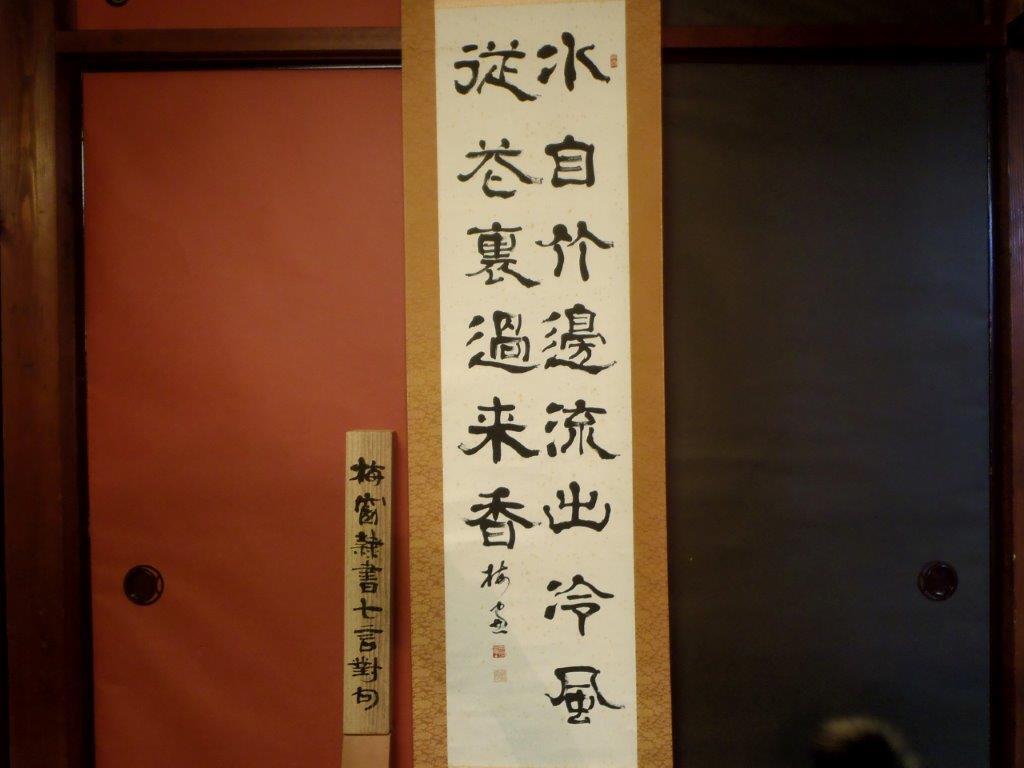 水自竹邊流出冷風
従花裏過来香
梅窗
梅窗隷書七言對句